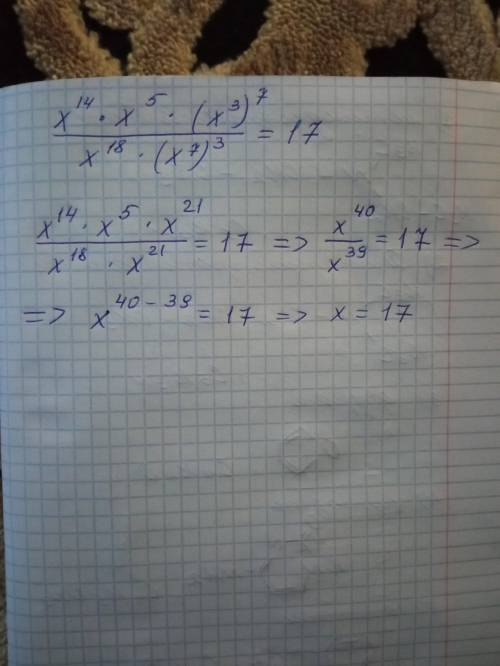 x^14 · x^5 · (x^3)^7 / x^18 · (x^7)^3 = 17
x^14 · x^5 · x^21 / x^18 · x^21 = 17 => x^40 / x^39 = 17 =>
=> x^40-39 = 17 => x = 17